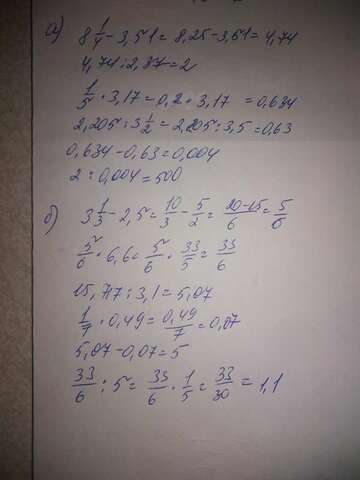 а) 8 1/4 - 3,51 = 8,25 - 3,51 = 4,74
4,74 : 2,37 = 2
1/5 · 3,17 = 0,2 · 3,17 = 0,634
2,205 : 3 1/2 = 2,205 : 3,5 = 0,63
0,634 - 0,63 = 0,004
2 : 0,004 = 500
б) 3 1/3 - 2,5 = 10/3 - 5/2 = 20-15/6 = 5/6
5/6 · 6,6 = 5/6 · 33/5 = 33/6
15,717 : 3,1 = 5,07
1/7 · 0,49 = 0,49/7 = 0,07
5,07 - 0,07 = 5
33/6 : 5 = 33/6 · 1/5 = 33/30 = 1,1